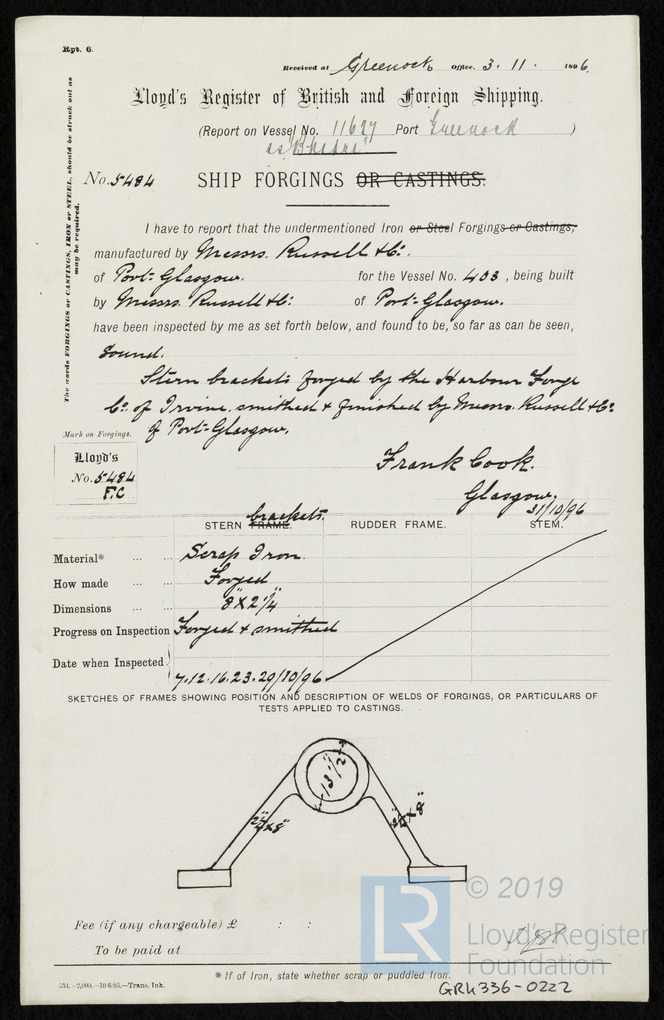 Rpt. 6.
Received at Greenock Office, 3. 11. 1896.
Lloyd's Register of British and Foreign Shipping.
(Report on Vessel No. 11627 Port Greenock )
as "
No. 5484 SHIP FORGINGS OR CASTINGS.
The words FORGINGS or CASTINGS, IRON or STEEL, should be struck out as
may be required.
I have to report that the undermentioned Iron or Steel Forgings or Castings,
manufactured by Messrs. Russell & Co.
of Port-Glasgow. for the Vessel No. 403, being built
by Messrs. Russell & Co. of Port-Glasgow.
have been inspected by me as set forth below, and found to be, so far as can be seen,
Sound.
Stern brackets forged by the Harbour Forge
Co. of Irvine, smithed & finished by Messrs. Russell & Co.
of Port-Glasgow.
Mark on Forgings.
Lloyd's
No. 5484
F.C
Frank Cook.
Glasgow,
31/10/96
brackets.
STERN FRAME. RUDDER FRAME. STEM.
Material* ... ... Scrap Iron
How made ... ... Forged
Dimensions ... ... 8" X 2 1/4"
Progress on Inspection Forged & smithed
Date when Inspected. 7.12.16.23.29/10/96
SKETCHES OF FRAMES SHOWING POSITION AND DESCRIPTION OF WELDS OF FORGINGS, OR PARTICULARS OF
TESTS APPLIED TO CASTINGS.
13 1/2"
2 1/4" x 8"
2 1/4" x 8"
Fee (if any chargeable) £ : :
To be paid at
* If of Iron, state whether scrap or puddled Iron.
534.—2,000.—10/6/95.—Trans. Ink.
GRK336-0222
LR
© 2019
Lloyd's Register
Foundation